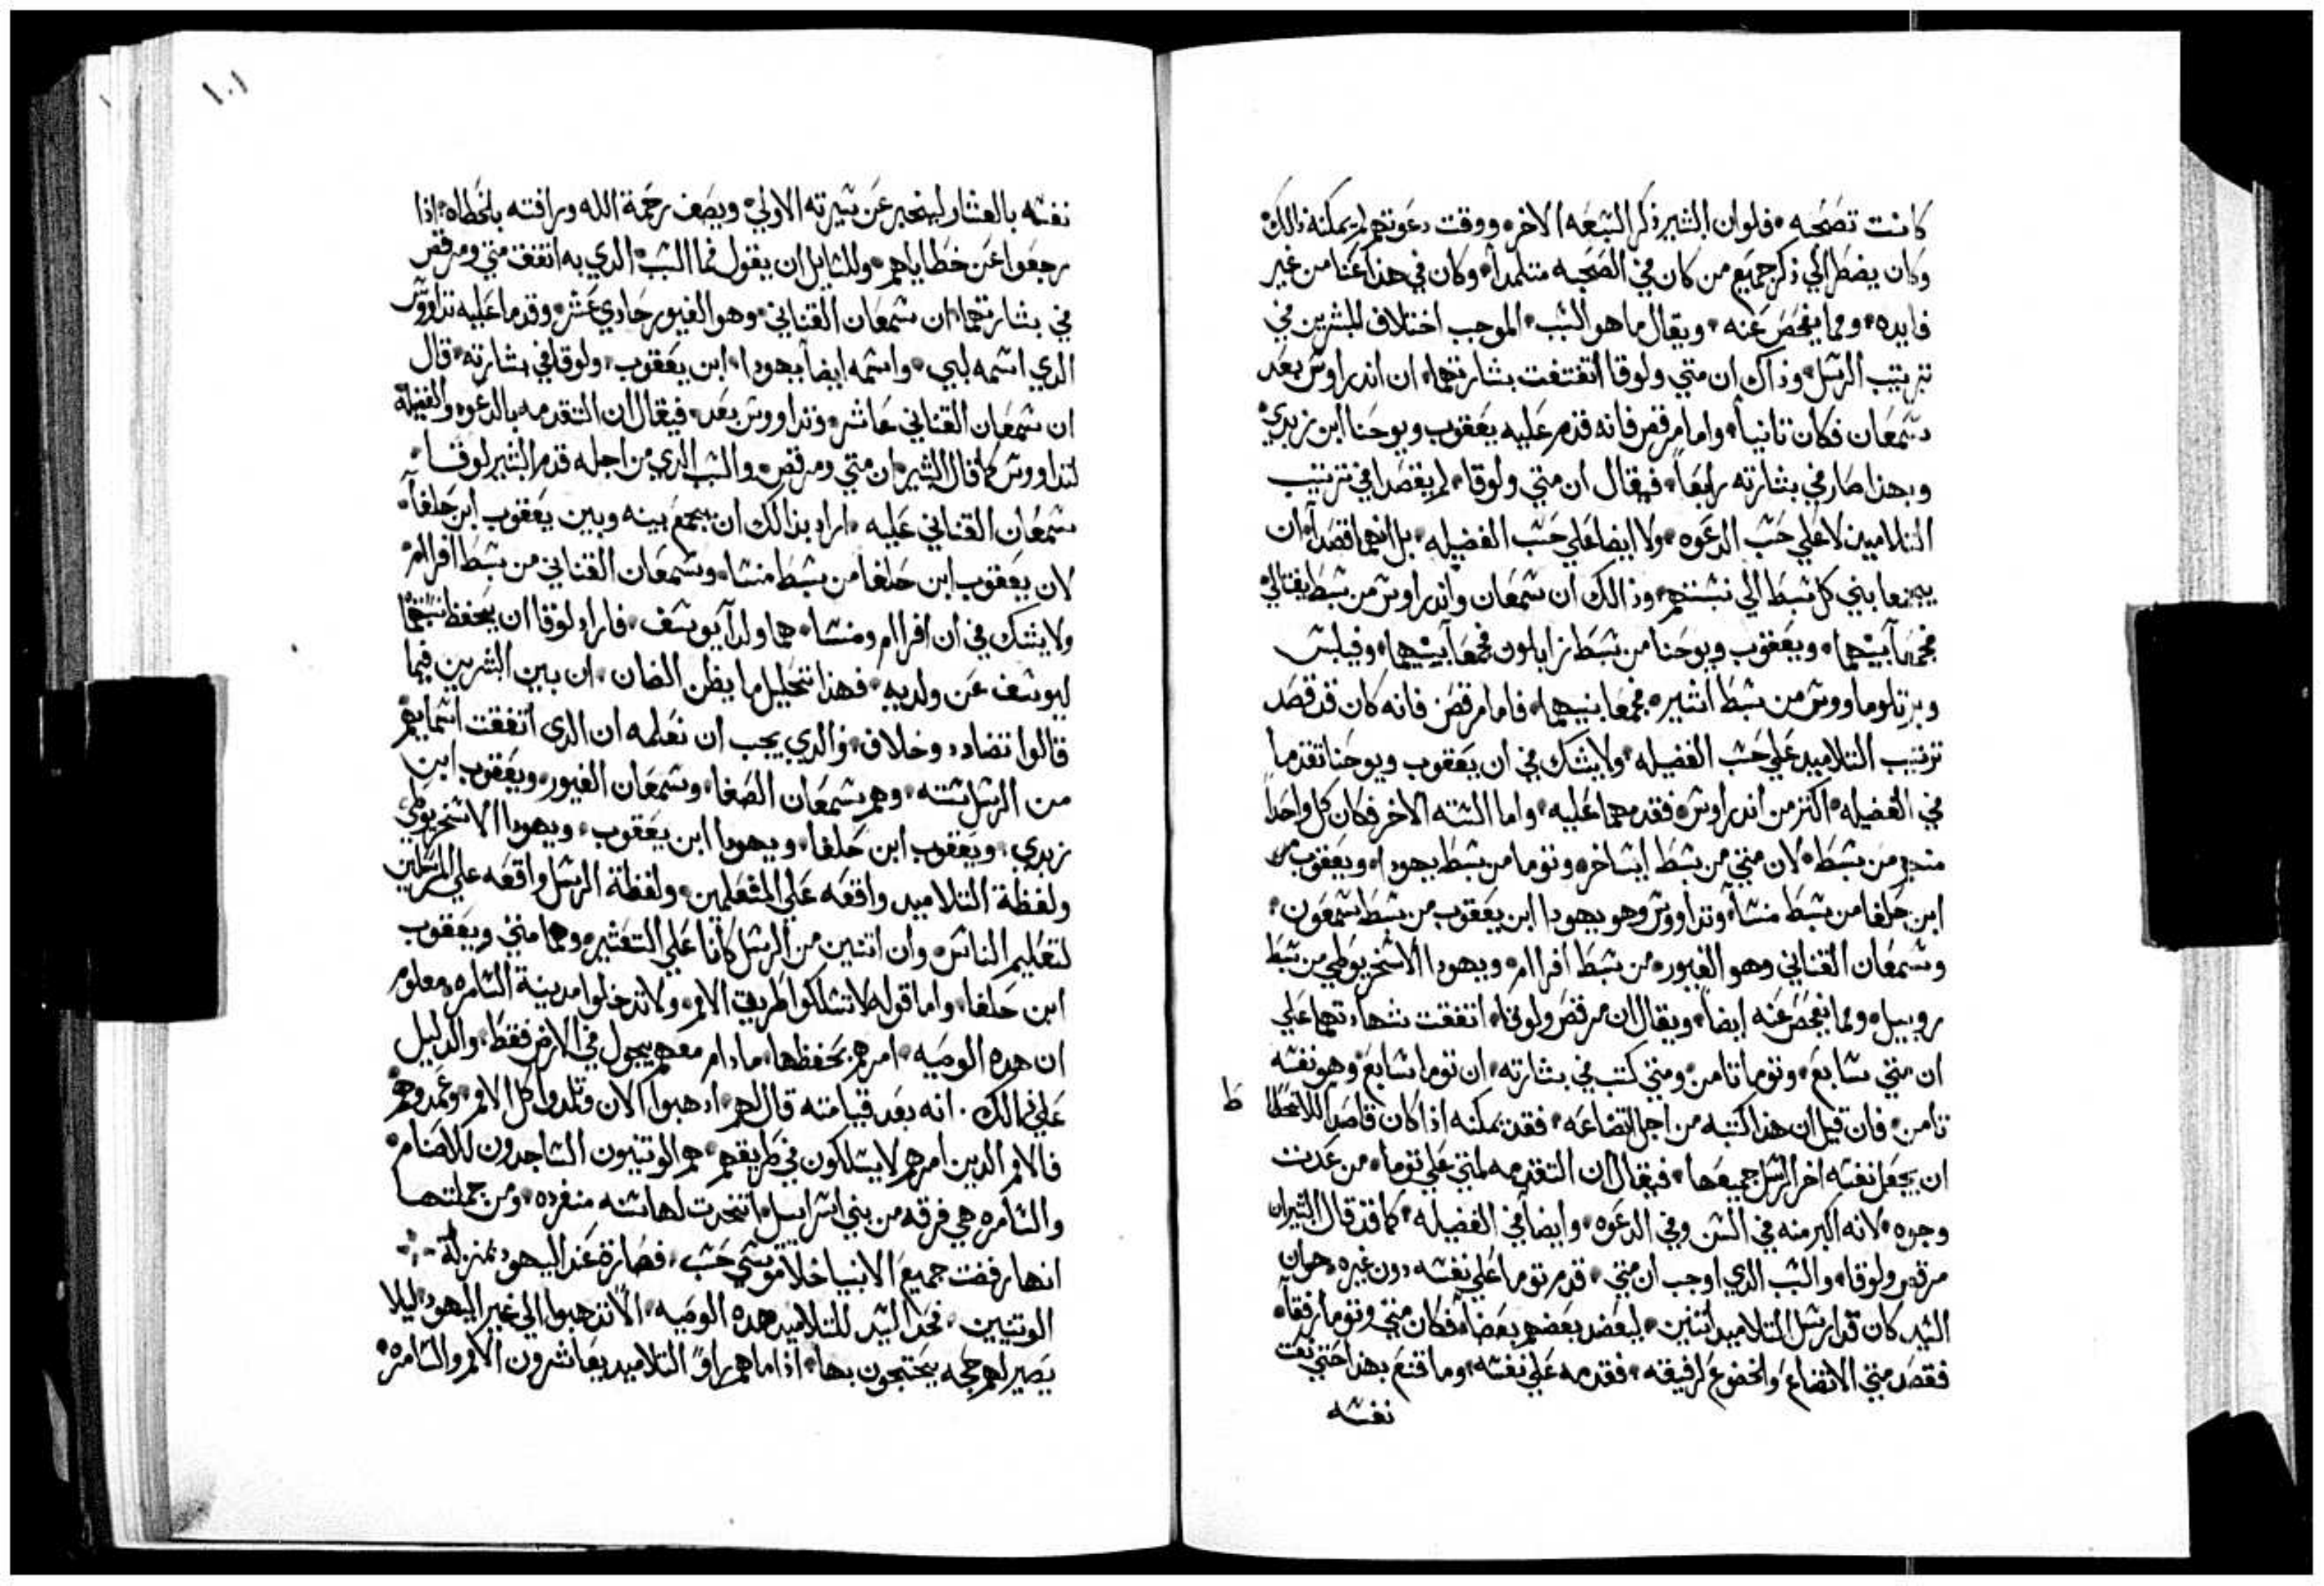 كانت تصحبه ٠ فلو ان البشير ذكر التسعه الاخر ٠ ووقت دعوتهم لم يمكنه ذالك ٠
وكان يضطر الي ذكر جميع من كان في الصحبه متتلمداً ٠ وكان في هذا عنا من غير
فايده ٠ ومما يفحص عنه ٠ ويقال ما هو السبب ٠ الموجب اختلاف المبشرين في
ترتيب الرسل ٠ وذاك ان متي ولوقا اتفقت بشارتهما ٠ ان اندراوس بعد
سمعان فكان تانياً ٠ واما مرقص فانه قدم عليه يعقوب ويوحنا ابن زبدي ٠
وبهذا صار في بشارته رابعاً ٠ فيقال ان متي ولوقا ٠ لم يقصدا في ترتيب
التلاميد لا علي حسب الدعوه ٠ ولا ايضا علي حسب الفضيله ٠ بل انهما قصدا ٠ ان
يجمعا بني كل سبط الي نسبتهم ٠ وذالك ان سمعان واندراوس من سبط يفتالي ٠
فجمعا بينهما ٠ ويعقوب ويوحنا من سبط زابالون فجمعا بينهما ٠ وفيلبس
وبرتلوماووس من سبط اشير ٠ فجمعا بينهما ٠ فاما مرقص فانه كان قد قصد
ترتيب التلاميد علي حسب الفضيله ٠ ولا يشك في ان يعقوب ويوحنا تقدما
في الفضيله ٠ اكتر من اندراوس ٠ فقدمهما عليه ٠ واما السته الاخر فكان كل واحداً
منهم من سبط ٠ لان متي من سبط ايساخر ٠ وتوما من سبط يهودا ٠ ويعقوب
ابن حلفا من سبط منسا ٠ وتداووس وهو يهودا ابن يعقوب من سبط سمعون ٠
وسمعان القناني وهو الغيور ٠ من سبط افراام ٠ ويهودا الاسخريوطي من سبط
روبيل ٠ ومما يفحص عنه ايضاً ٠ ويقال ان مرقص ولوقا ٠ اتفقت شهادتهما علي
ان متي سابع ٠ وتوما تامن ٠ ومتي كتب في بشارته ٠ ان توما سابع ٠ وهو نفسه
تامن ٠ فان قيل ان هذا كتبه من اجل اتضاعه ٠ فقد يمكنه اذا كان قاصداً
ط
ان يجعل نفسه اخر الرسل جميعها ٠ فيقال ان التقدمه لمتي علي توما ٠ من عدت
وجوه ٠ لانه اكبر منه في السن وفي الدعوه ٠ وايضا في الفضيله ٠ كما قد قال البشيران
مرقص ولوقا ٠ والسبب الدي اوجب ان متي ٠ قدم توما علي نفسه دون غيره ٠ هو ان
السيد كان قد ارسل التلاميد اتنين ٠ ليعضد بعضهم بعضاً ٠ فكان متي وتوما رفقاً ٠
فقصد متي الاتضاع والخضوع لرفيقه ٠ فقدمه علي نفسه ٠ وما قنع بهذا حتي نعت
نفسه
١٠١
نفسه بالعشار ليخبر عن سيرته الاولي ٠ ويصف رحمة الله ورافته بالخطاه ٠ اذا
رجعوا عن خطاياهم ٠ وللسايل ان يقول فما السبب ٠ الدي به اتفق متي ومرقص
في بشارتهما ٠ ان سمعان القناني ٠ وهو الغيور حادي عشر ٠ وقدما عليه تداووس
الدي اسمه لبي ٠ واسمه ايضاً يهودا ٠ ابن يعقوب ٠ ولوقا في بشارته ٠ قال
ان سمعان القناني عاشر ٠ وتداووس بعد ٠ فيقال ان التقدمه بالدعوه والفضيلة
لتداووس كما قال البشيران متي ومرقص ٠ والسبب الدي من اجله قدم البشير لوقا ٠
سمعان القناني عليه ٠ اراد بذالك ان يجمع بينه وبين يعقوب ابن حلفا ٠
لان يعقوب ابن حلفا من سبط منسا ٠ وسمعان القناني من سبط افراام ٠
ولا يشك في ان افراام ومنسا ٠ هما ولدا يوسف ٠ فاراد لوقا ان يحفظ نسبتهما
ليوسف عن ولديه ٠ فهذا تحليل ما يظن الضان ٠ ان بين البشرين فيما
قالوا تضادد وخلاف ٠ والدي يجب ان نعلمه ان الدي اتفقت اسمايهم
من الرسل سته ٠ وهم سمعان الصفا ٠ وسمعان الغيور ٠ ويعقوب ابن
زبدي ٠ ويعقوب ابن حلفا ٠ ويهودا ابن يعقوب ٠ ويهودا الاسخريوطي
ولفظة التلاميد واقعه علي المتعلمين ٠ ولفظة الرسل واقعه علي المرسلين
لتعليم الناس ٠ وان اتنين من الرسل كانا علي التعشير ٠ وهما متي ويعقوب
ابن حلفا ٠ واما قوله لا تسلكوا طريق الامم ٠ ولا تدخلوا مدينة السامره ٠ معلوم
ان هده الوصيه ٠ امرهم بحفظها ٠ مادام معهم يجول في الارض فقط ٠ والدليل
علي ذالك ٠ انه بعد قيامته قال لهم ٠ ادهبوا الان وتلمدوا كل الامم ٠ وعمدوهم
فالامم الدين امرهم لا يسلكون في طريقهم ٠ هم الوتنيون الساجدون للاصنام ٠
والسامره هي فرقه من بني اسراييل ٠ اتخدت لها سنه منفرده ٠ ومن جملتها
انها رفضت جميع الانبيا خلا موسي حسب ٠ فصارة عند اليهود بمنزلة
الوتنيين ٠ فحد السيد للتلاميد هده الوصيه ٠ الا تدهبوا الي غير اليهود ٠ ليلا
يصير لهم حجه يحتجون بها ٠ اذا ما هم راوا التلاميد يعاشرون الامم والسامره ٠